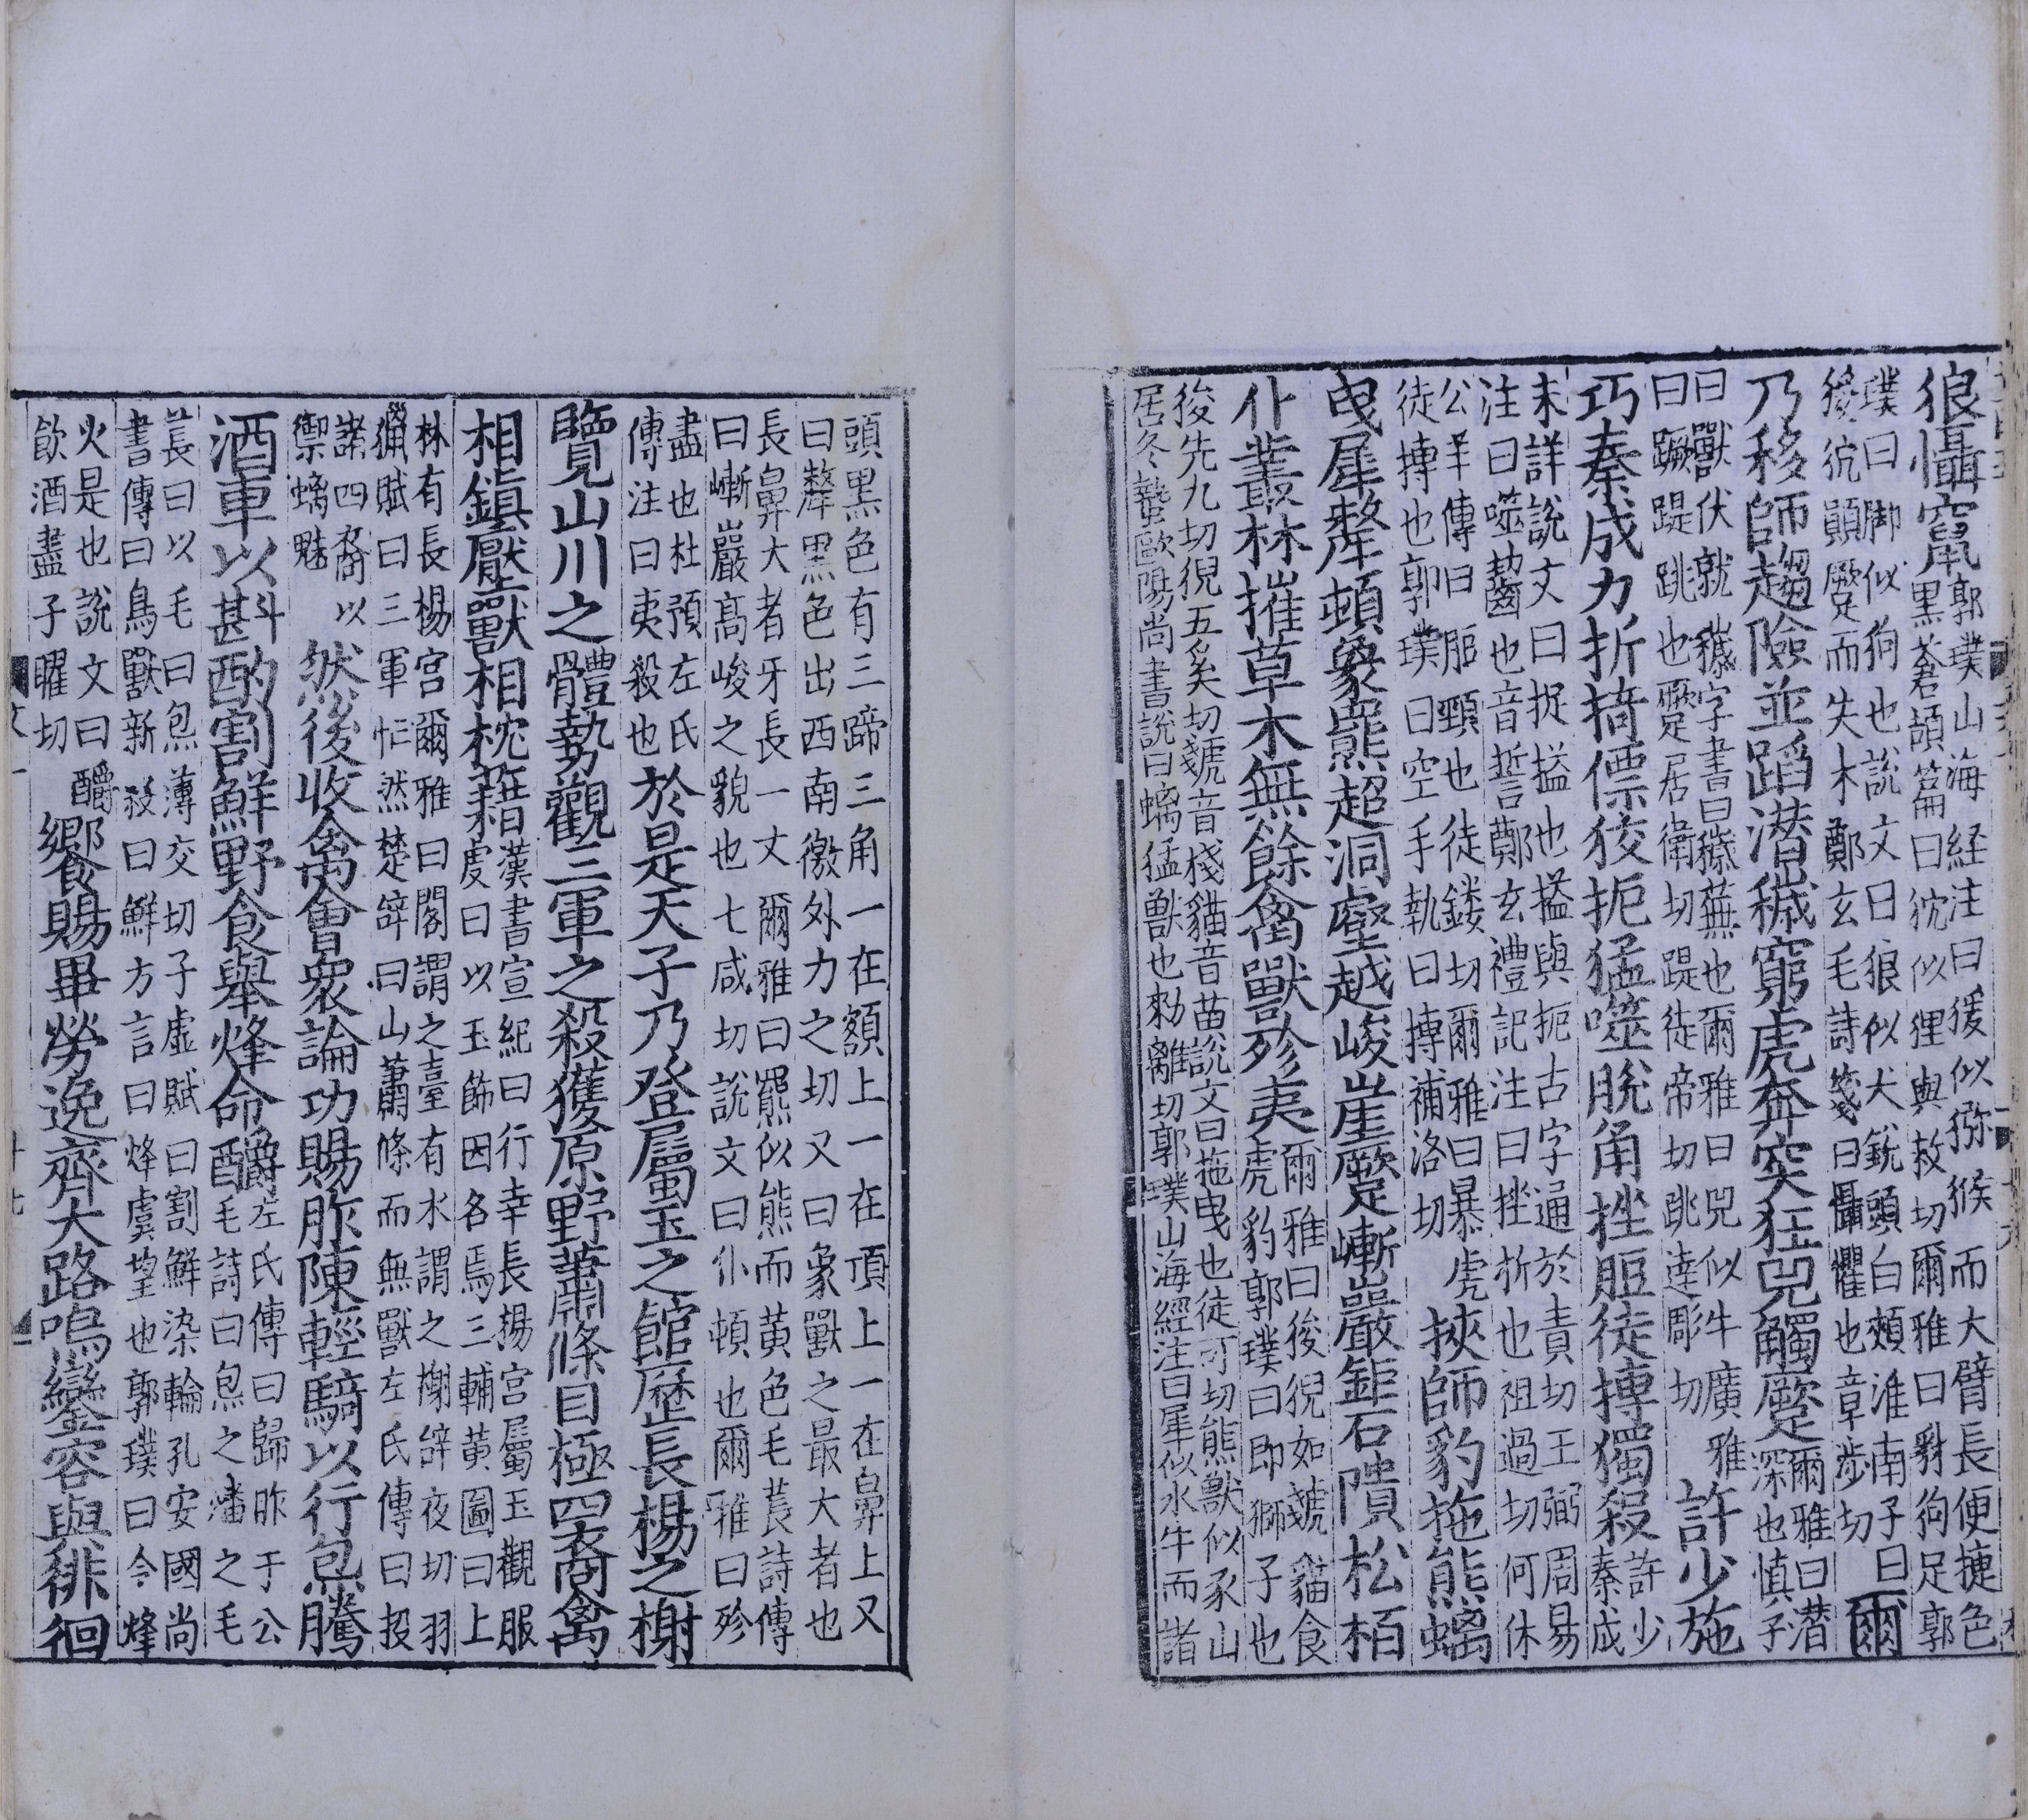 狼懾竄郭璞山海経注曰猨似猕猴而大臂長便捷色
黒蒼頡篇曰狖似狸與救切爾雅曰豺狗足郭
璞曰脚似狗也說文曰狼似犬銳頭白頰淮南子曰
猨狖顛蹷而失木鄭玄毛詩箋曰懾懼也章涉切爾
乃移師趨險並蹈潛穢窮虎奔突狂兕觸蹷爾雅曰潛
深也慎子
曰獸伏就穢字書曰穢蕪也爾雅曰兕似牛廣雅
曰蹶踶跳也蹷居衛切踶徒帝切跳達彫切許少施
巧秦成力折掎僄狡扼猛噬脫角挫脰徒搏獨殺許少
秦成
未詳說文曰捉搤也搤與扼古字通於責切王弼周易
注曰噬齧也音誓鄭玄禮記注曰挫折也祖過切何休
公羊傳曰脰頸也徒鏤切爾雅曰暴虎
徒搏也郭璞曰空手執曰搏補洛切挾師豹拖熊螭
曳犀犛頓象羆超洞壑越峻崖蹷嶄巖鉅石隤松栢
仆叢林摧草木無餘禽獸殄夷爾雅曰狻猊如虦貓食
虎豹郭璞曰即獅子也
狻先九切猊五奚切虦音棧貓音苗說文曰拖曳也徒可切熊獸似豕山
居冬蟄歐陽尚書說曰螭猛獸也勑離切郭璞山海經注曰犀似水牛而諸
頭黒色有三蹄三角一在額上一在頂上一在鼻上又
曰犛黒色出西南徼外力之切又曰象獸之最大者也
長鼻大者牙長一丈爾雅曰羆似熊而黄色毛萇詩傳
曰嶄巖高峻之貌也七咸切說文曰仆頓也爾雅曰殄
盡也杜預左氏
傳注曰夷殺也於是天子乃登屬玉之館歷長楊之榭
覽山川之體勢觀三軍之殺獲原野蕭條目極四裔禽
相鎮壓獸相枕藉漢書宣紀曰行幸長楊宮屬玉觀服
虔曰以玉飾因名焉三輔黄圖曰上
林有長楊宮爾雅曰閣謂之臺有木謂之榭辞夜切羽
獵賦曰三軍忙然楚辞曰山蕭條而無獸左氏傳曰投
諸四裔以
禦螭魅然後收禽會衆論功賜胙陳輕騎以行炰騰
酒車以斟酌割鮮野食舉烽命釂左氏傳曰歸胙于公
毛詩曰炰之燔之毛
萇曰以毛曰炰薄交切子虛賦曰割鮮染輪孔安國尚
書傳曰鳥獸新殺曰鮮方言曰烽虞望也郭璞曰今烽
火是也說文曰釂
飲酒盡子曜切饗賜畢勞逸齊大路鳴鑾容與徘徊